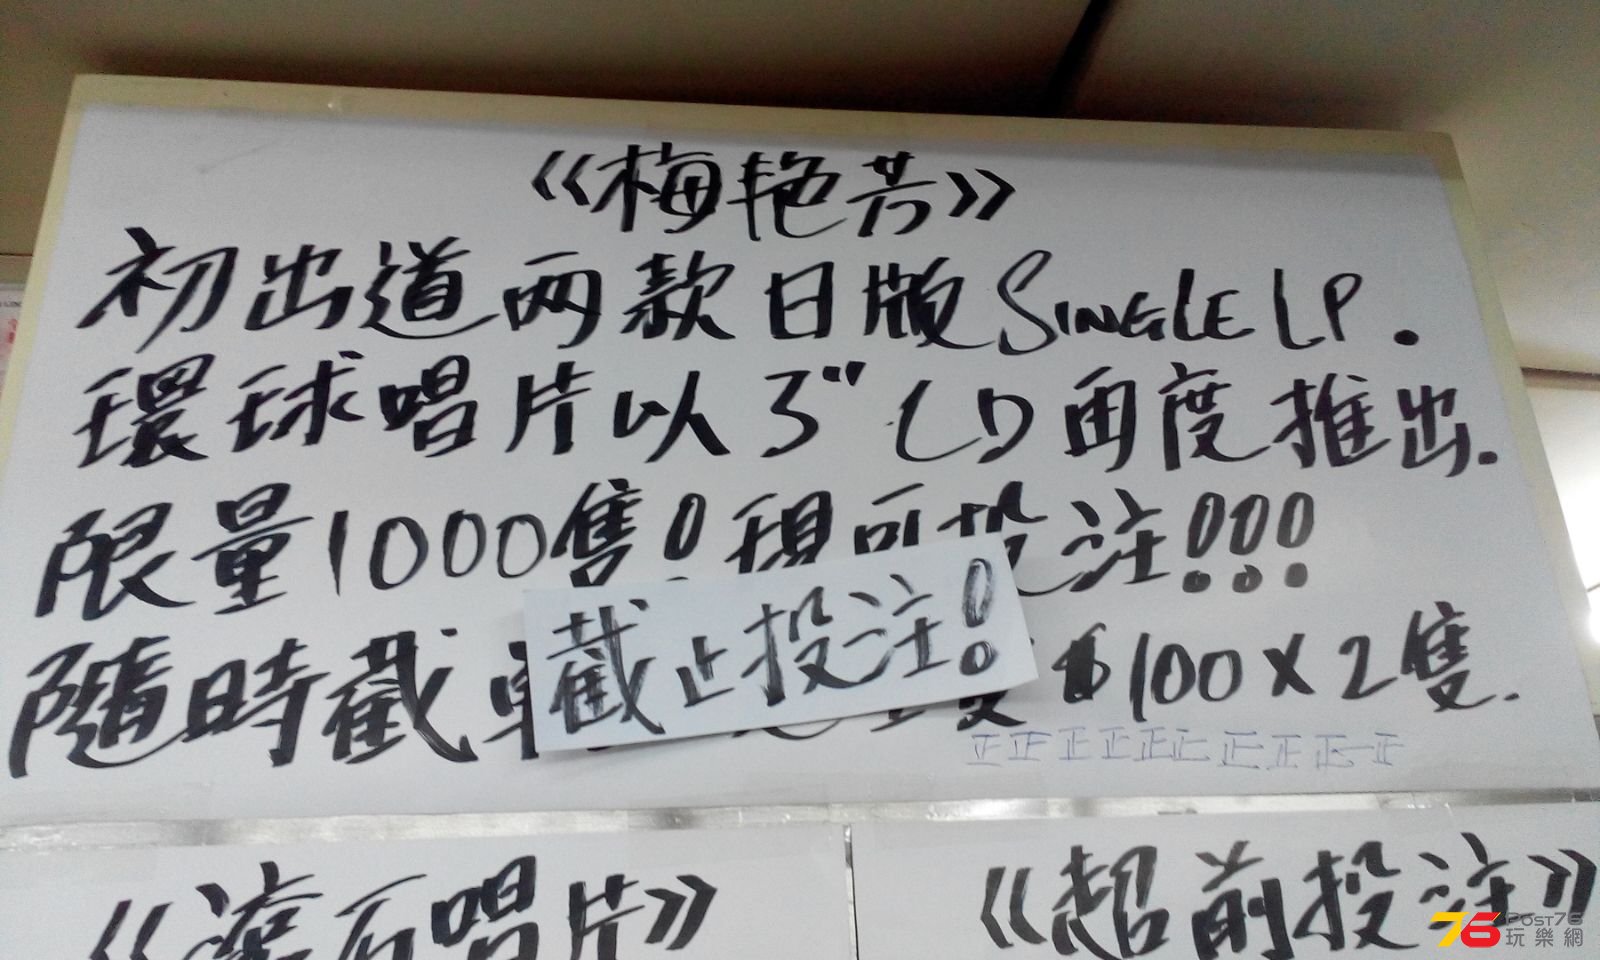 《梅艷芳》
初出道兩款日版SINGLE LP.
環球唱片以3"CD再度推出.
限量1000隻!現可投注!!!
隨時截
截止投注!
$100x2隻.
正正正正正正正正正正
《滾石唱片》
《超前投注》
76 POST76
玩樂網